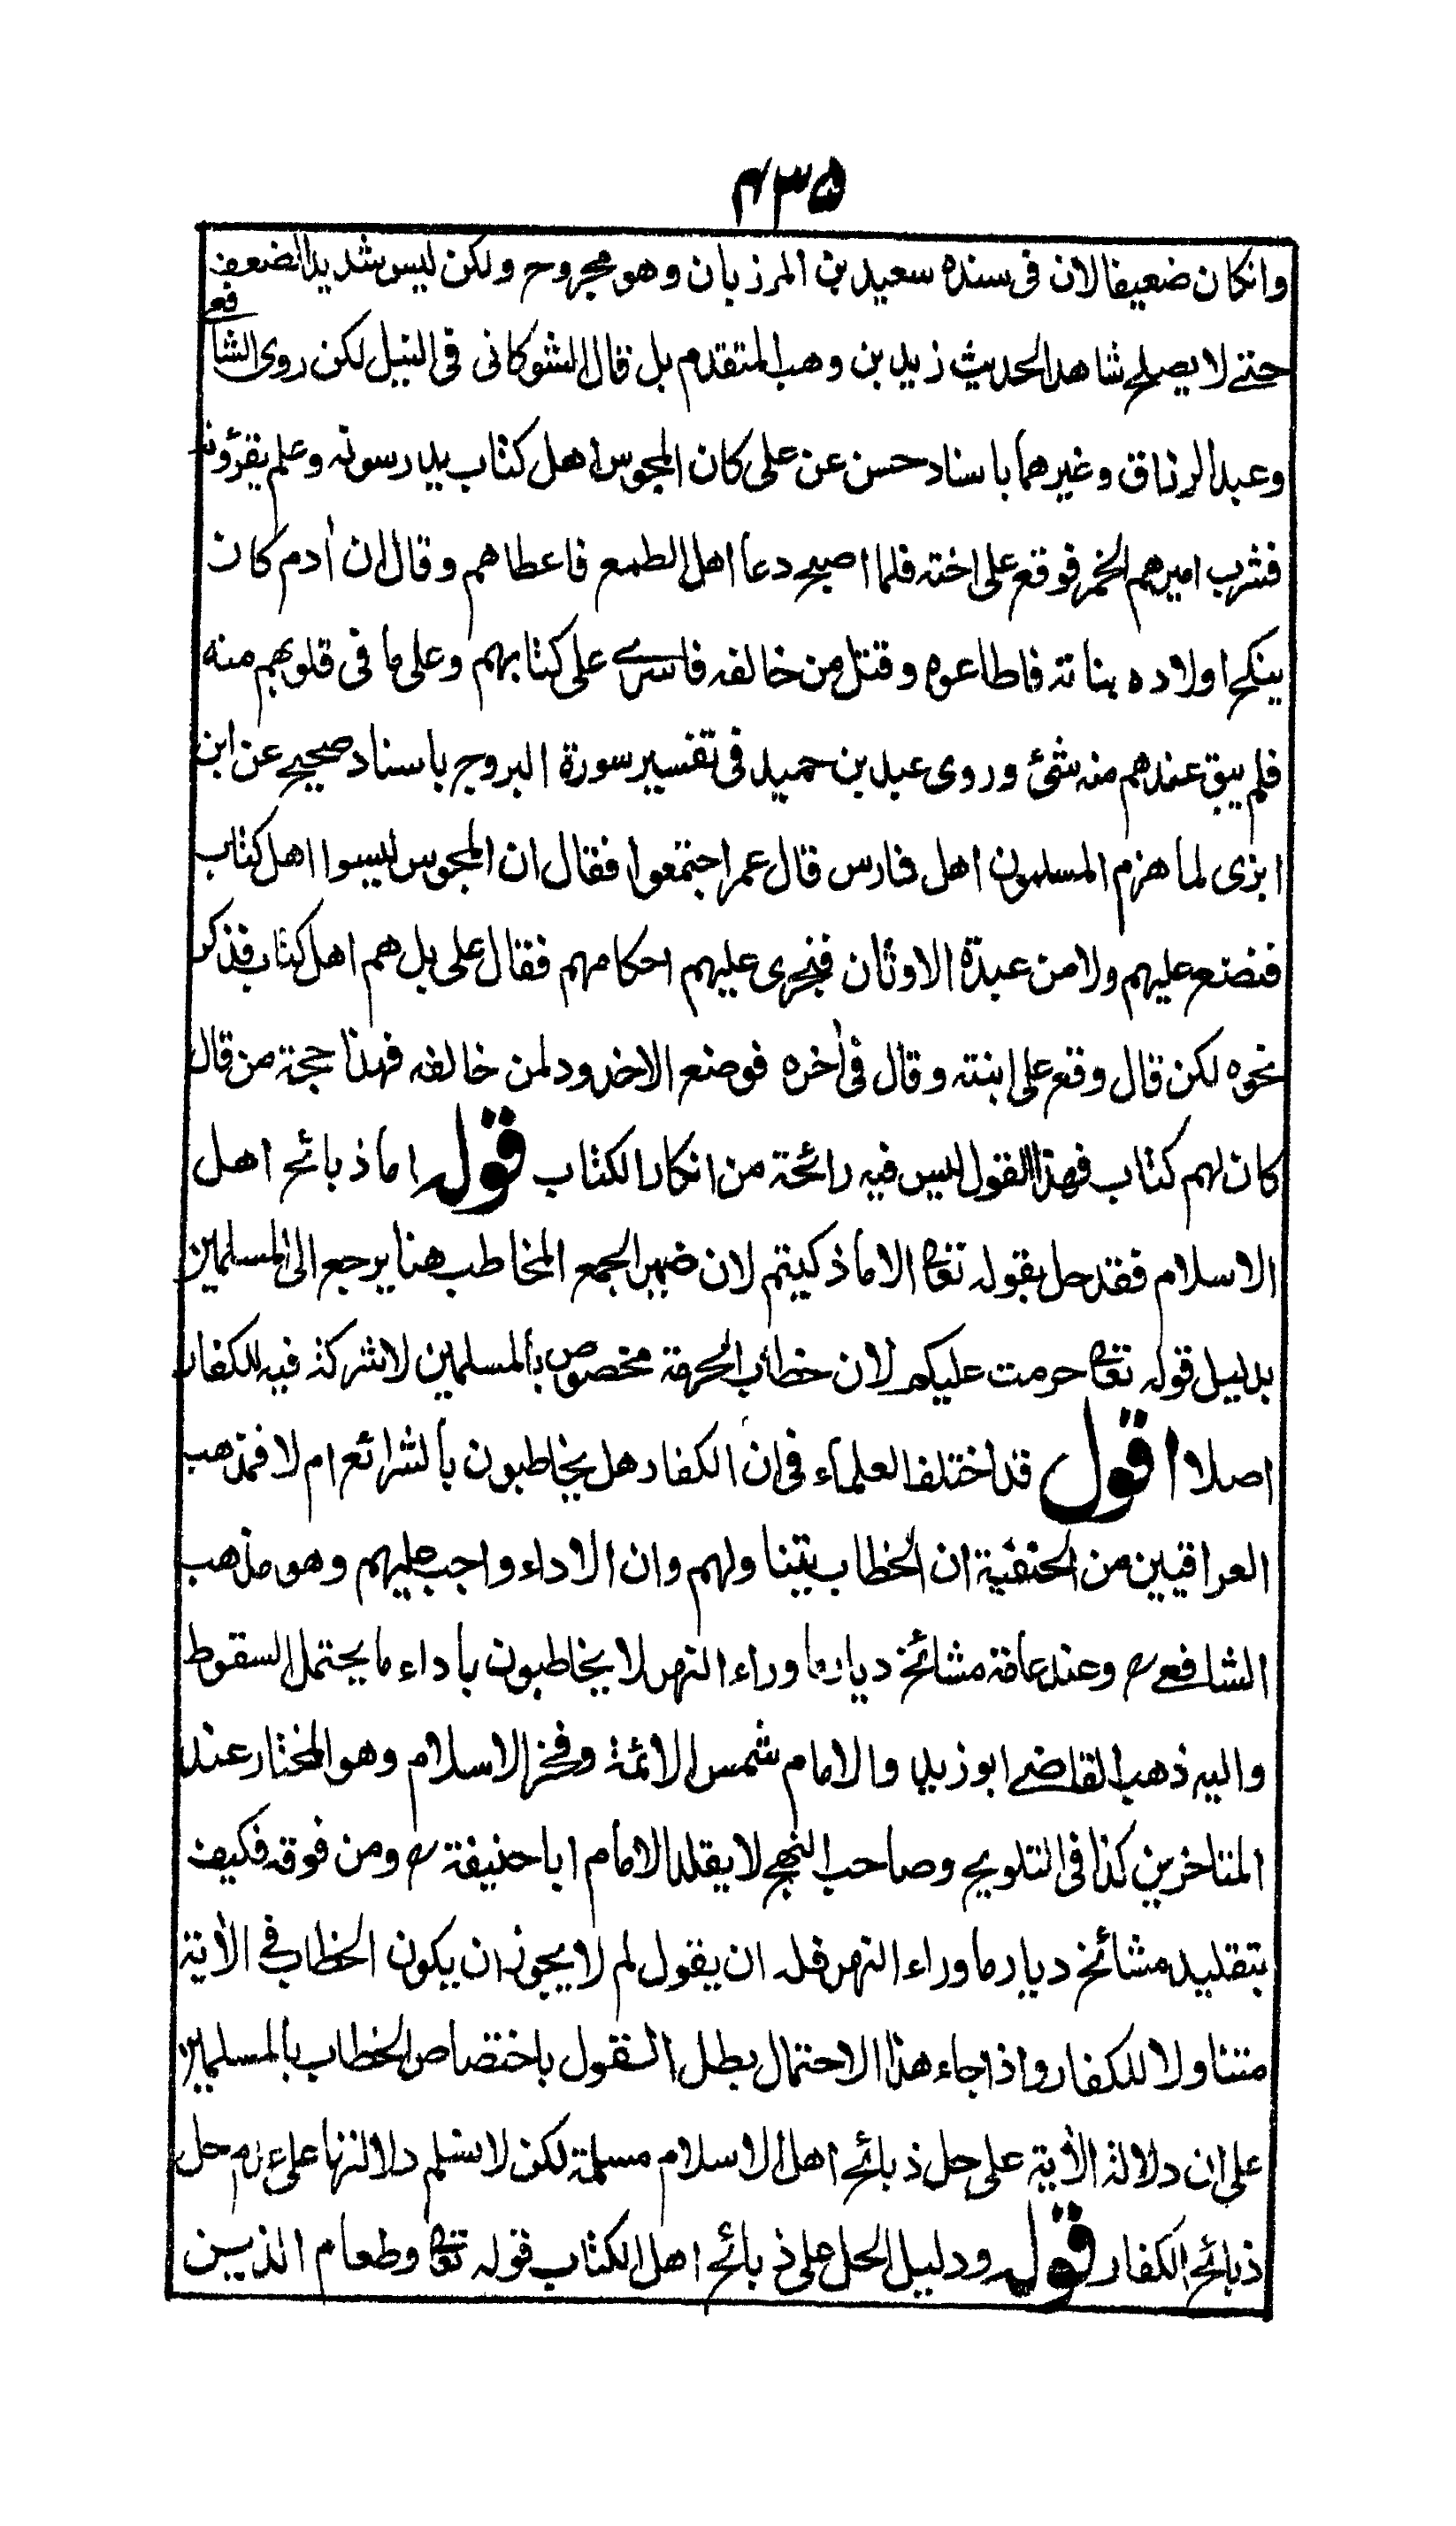 ۴۳۵
وانكان ضعيفا لان فى سنده سعيد بن المرزبان وهو مجروح ولكن ليس شديد الضعف
حتے لا يصلح شاهد الحديث زيد بن وهب المتقدم بل قال الشوكانى فى النيل لكن روى الشافعے
وعبد الرزاق وغيرهما باسناد حسن عن على كان المجوس اهل كتاب يدرسونه وعلم يقرؤنه
فشرب اميرهم الخمر فوقع على اخته فلما اصبح دعا اهل الطمع فاعطاهم وقال ان اٰدم كان
ينكح اولاده بناته فاطاعوه وقتل من خالفه فاسرے على كتابهم وعلى ما فى قلوبهم منه
فلم يبق عندهم منه شئ وروى عبد بن حميد فى تفسير سورة البروج باسناد صحيح عن ابن
ابزى لما هزم المسلمون اهل فارس قال عمر اجتمعوا فقال ان المجوس ليسوا اهل كتاب
فنضع عليهم ولا من عبدة الاوثان فنجرى عليهم احكامهم فقال على بل هم اهل كتاب فذكر
نحوه لكن قال وقع على ابنته وقال فى اٰخره فوضع الاخدود لمن خالفه فهذا حجة من قال
كان لهم كتاب فهذا القول ليس فيه رائحة من انكار الكتاب قوله اما ذبائح اهل
الاسلام فقد حل بقوله تعالٰ الا ما ذكيتم لان ضمير الجمع المخاطب هنا يرجع الى المسلمين
بدليل قوله تعالٰ حرمت عليكم لان خطاب الحرمة مخصوص بالمسلمين لا شركة فيه للكفار
اصلا اقول قد اختلف العلماء فى ان الكفار هل يخاطبون بالشرائع ام لا فمذهب
العراقيين من الحنفية ان الخطاب يتناولهم وان الاداء واجب عليهم وهو مذهب
الشافعےؒ وعند عامة مشائخ ديار ما وراء النهر لا يخاطبون باداء ما يحتمل السقوط
واليه ذهب القاضے ابو زيد والامام شمس الائمة وفخر الاسلام وهو المختار عند
المتاخرين كذا فى التلويح وصاحب النهج لا يقلد الامام ابا حنيفةؒ ومن فوقه فكيف
بتقليد مشائخ ديار ما وراء النهر فله ان يقول لم لا يجوز ان يكون الخطاب فے الاٰية
متناولا للكفار واذا جاء هذا الاحتمال بطل القول باختصاص الخطاب بالمسلمين
على ان دلالة الاٰية على حل ذبائح اهل الاسلام مسلمة لكن لا نسلم دلالتها على عدم حل
ذبائح الكفار قوله ودليل الحل على ذبائح اهل الكتاب قوله تعالٰ وطعام الذين